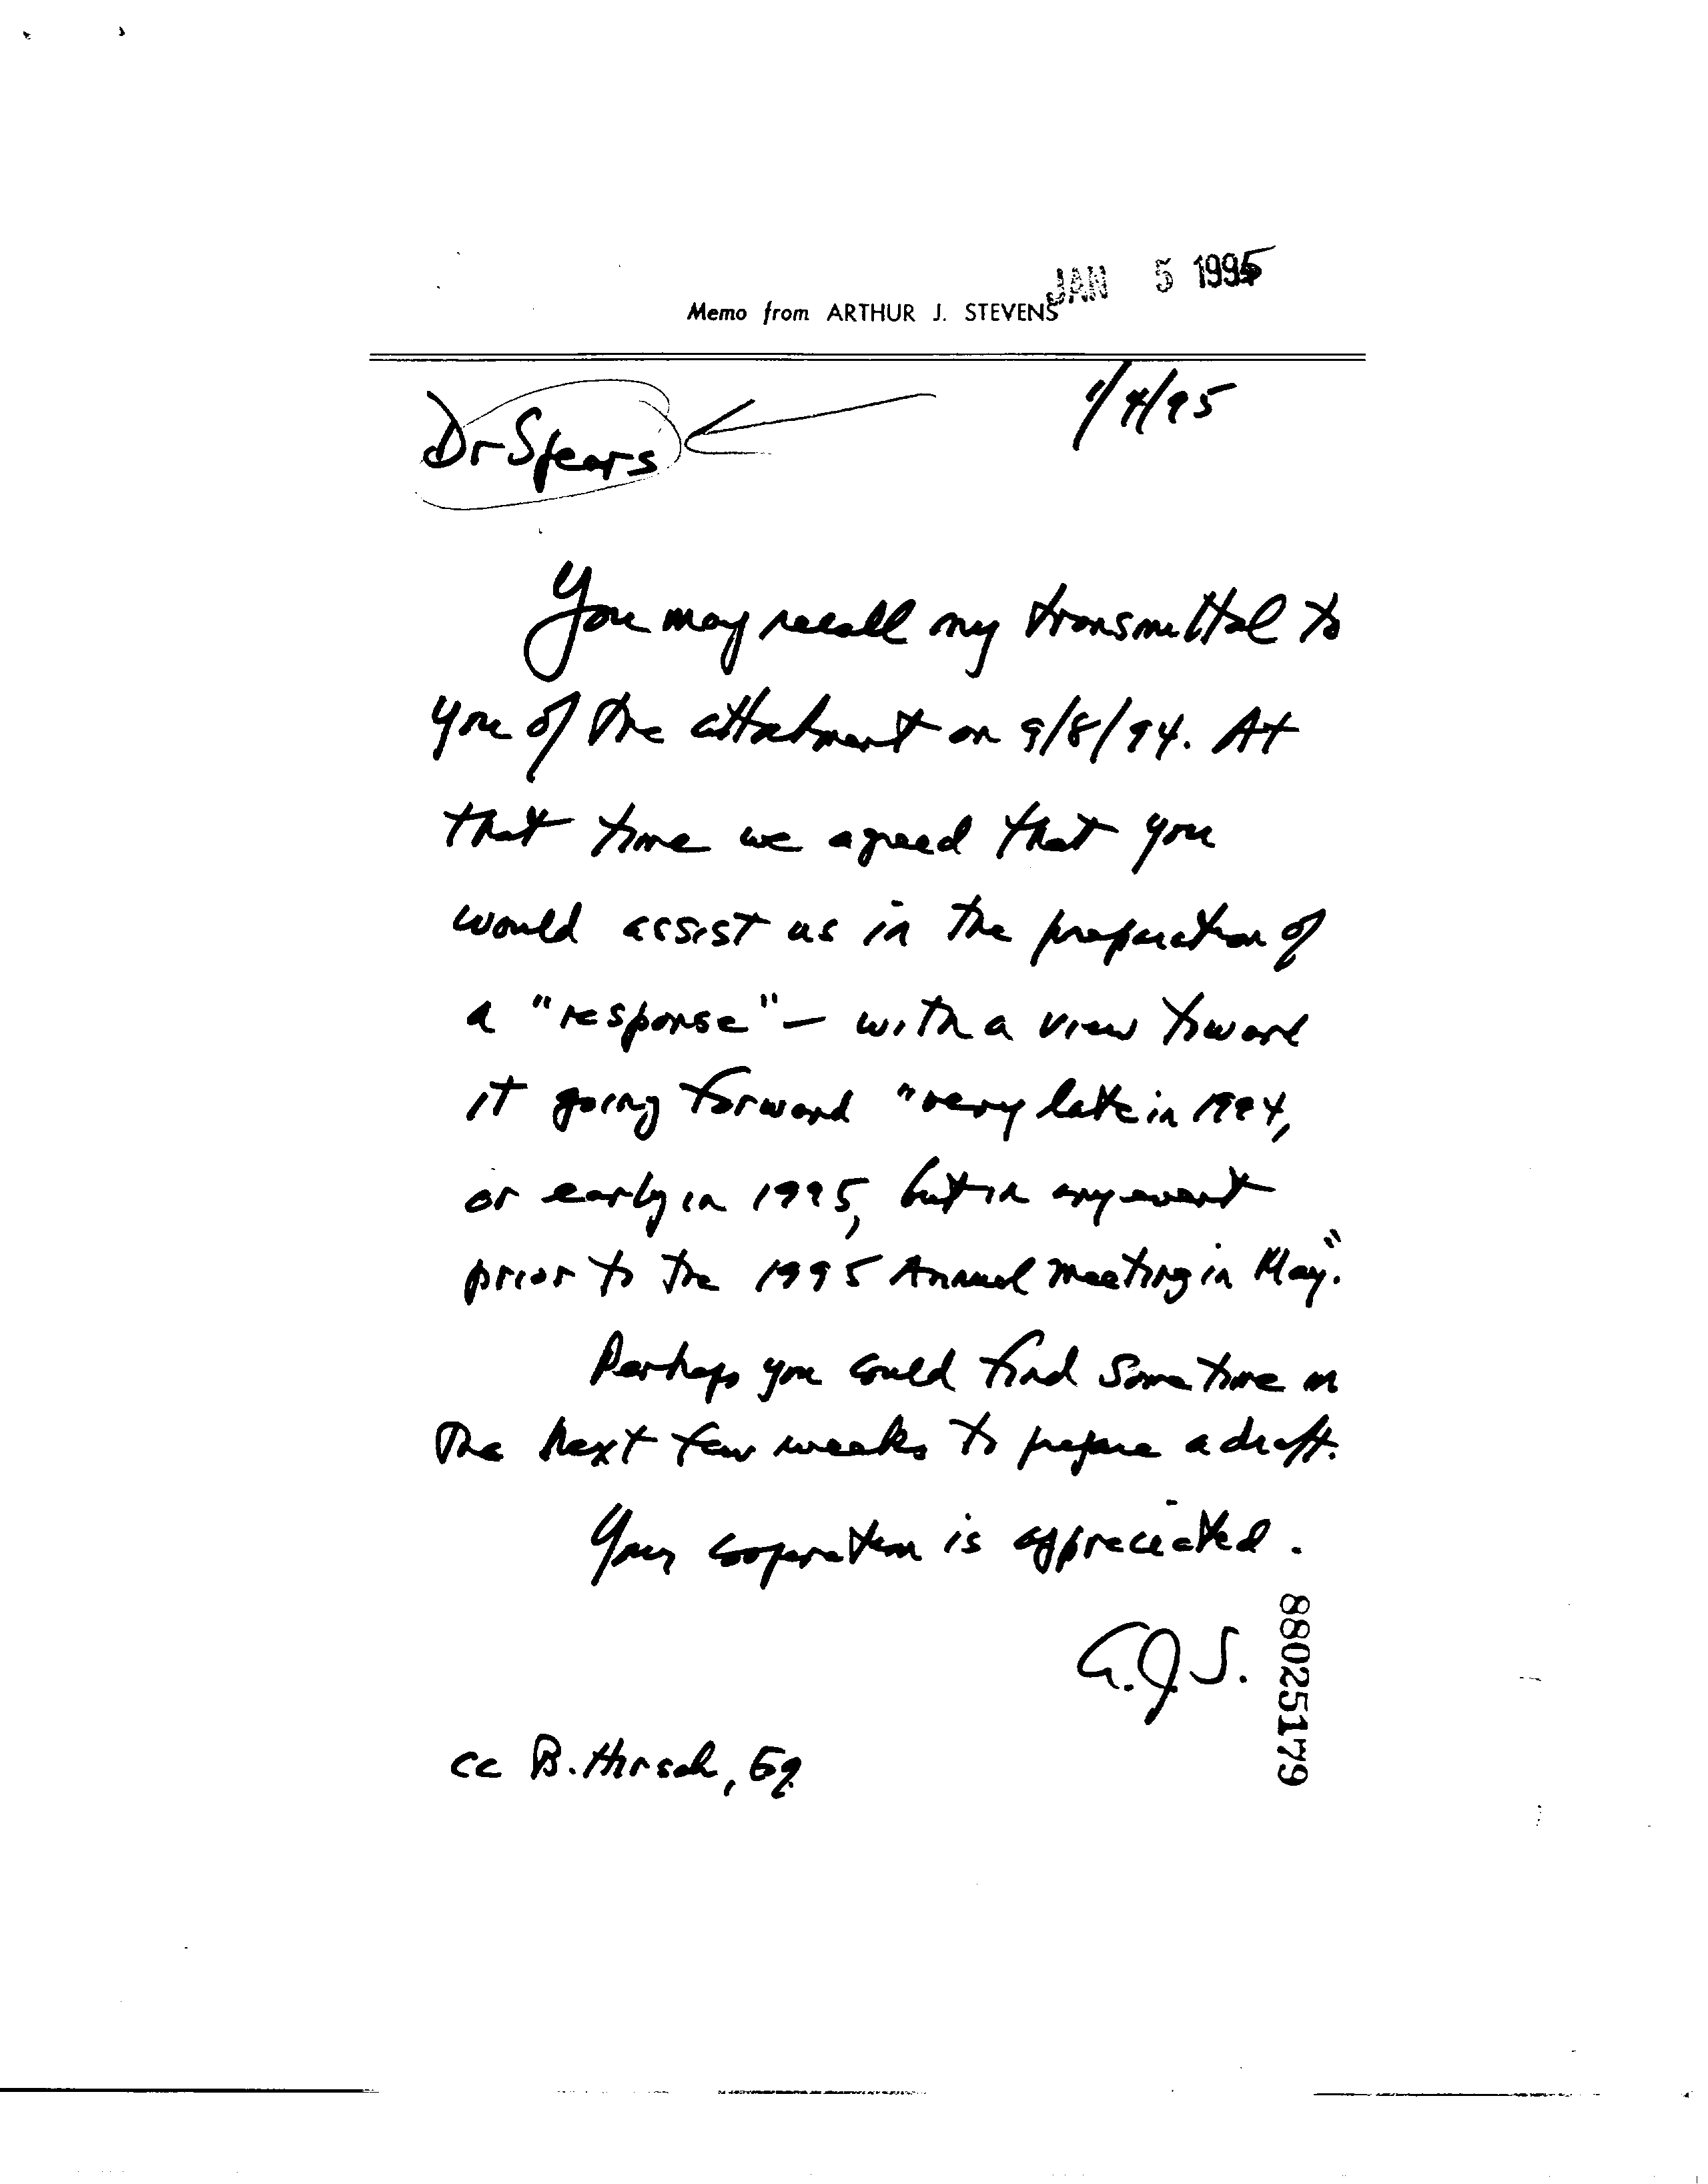 JAN 5 1995
Memo from ARTHUR J. STEVENS
1/4/95
Dr Spears
You may recall my transmittal to
you of the attachment on 9/8/94. At
that time we agreed that you
would assist us in the preparation of
a "response" - with a view toward
it going forward "very late in 1994,
or early in 1995, but in any event
prior to the 1995 Annual meeting in May."
Perhaps you could find some time in
the next few weeks to prepare a draft.
Your cooperation is appreciated.
A.J.S.
cc B. Hirsch, Eq.
88025179